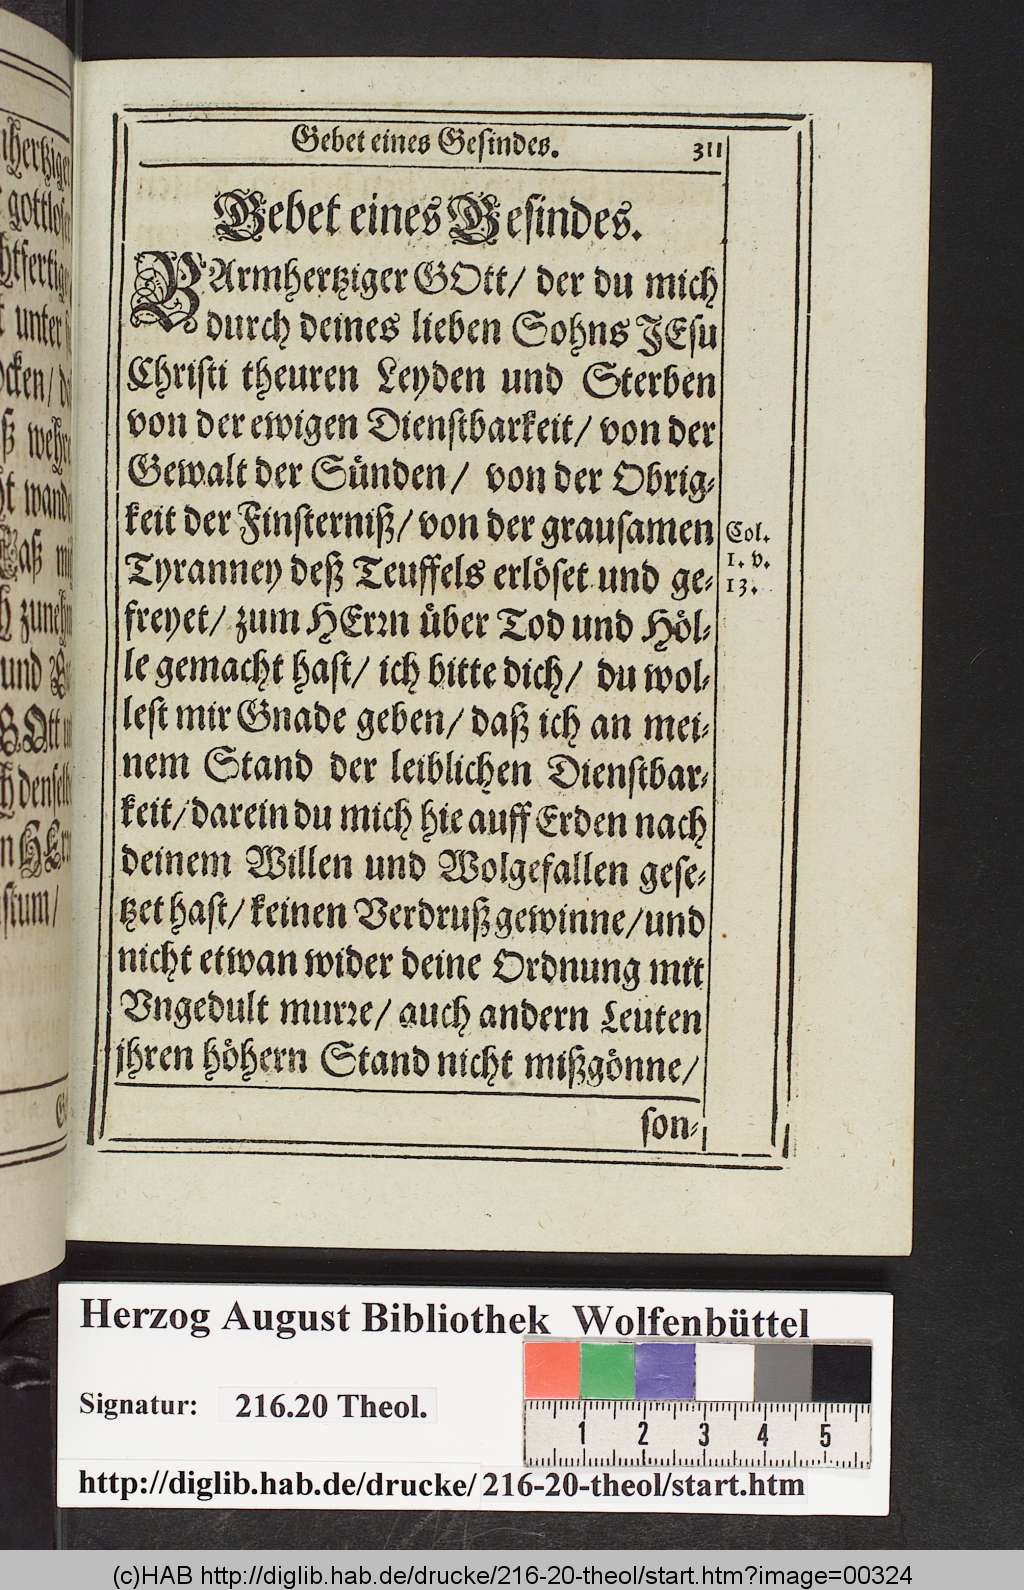 Gebet eines Gesindes. 311
Gebet eines Gesindes.
BArmhertziger GOtt/ der du mich
durch deines lieben Sohns JEsu
Christi theuren Leyden und Sterben
von der ewigen Dienstbarkeit/ von der
Gewalt der Sünden/ von der Obrig-
keit der Finsterniß/ von der grausamen
Tyranney deß Teuffels erlöset und ge-
freyet/ zum HErrn über Tod und Höl-
le gemacht hast/ ich bitte dich/ du wol-
lest mir Gnade geben/ daß ich an mei-
nem Stand der leiblichen Dienstbar-
keit/ darein du mich hie auff Erden nach
deinem Willen und Wolgefallen gese-
tzet hast/ keinen Verdruß gewinne/ und
nicht etwan wider deine Ordnung mit
Vngedult murre/ auch andern Leuten
jhren höhern Stand nicht mißgönne/
son-
Col.
1. v.
13.
Herzog August Bibliothek Wolfenbüttel
Signatur: 216.20 Theol.
1 2 3 4 5
http://diglib.hab.de/drucke/216-20-theol/start.htm
(c)HAB http://diglib.hab.de/drucke/216-20-theol/start.htm?image=00324